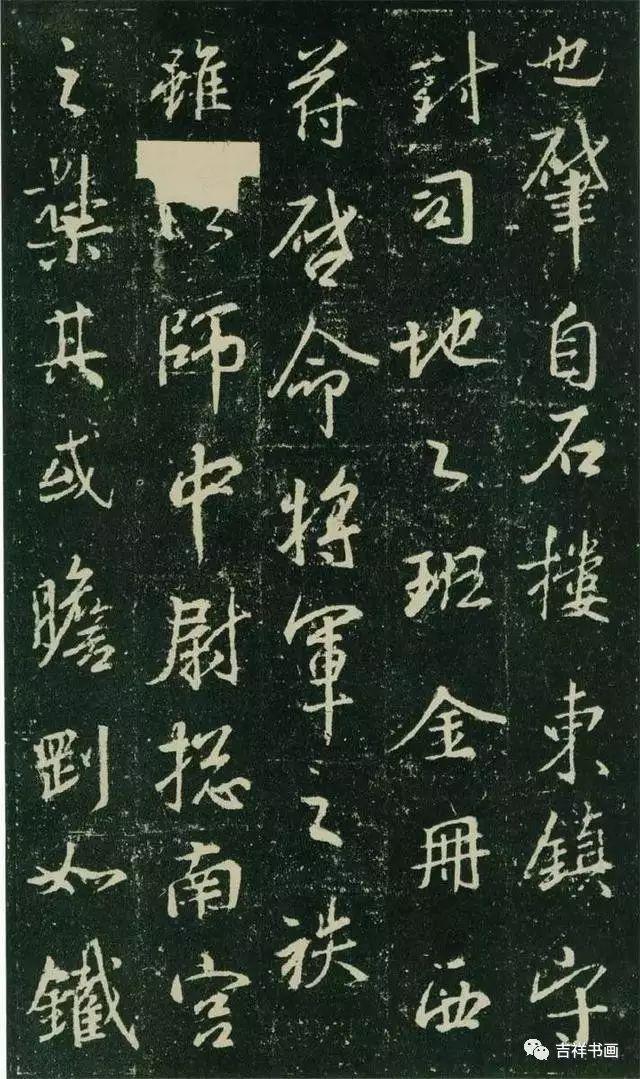 也肇自石樓東鎮守
封司地之班金冊西
符啓命將軍之秩
雖以師中尉揔南宮
之葉其或瞻剛如鐵
吉祥书画